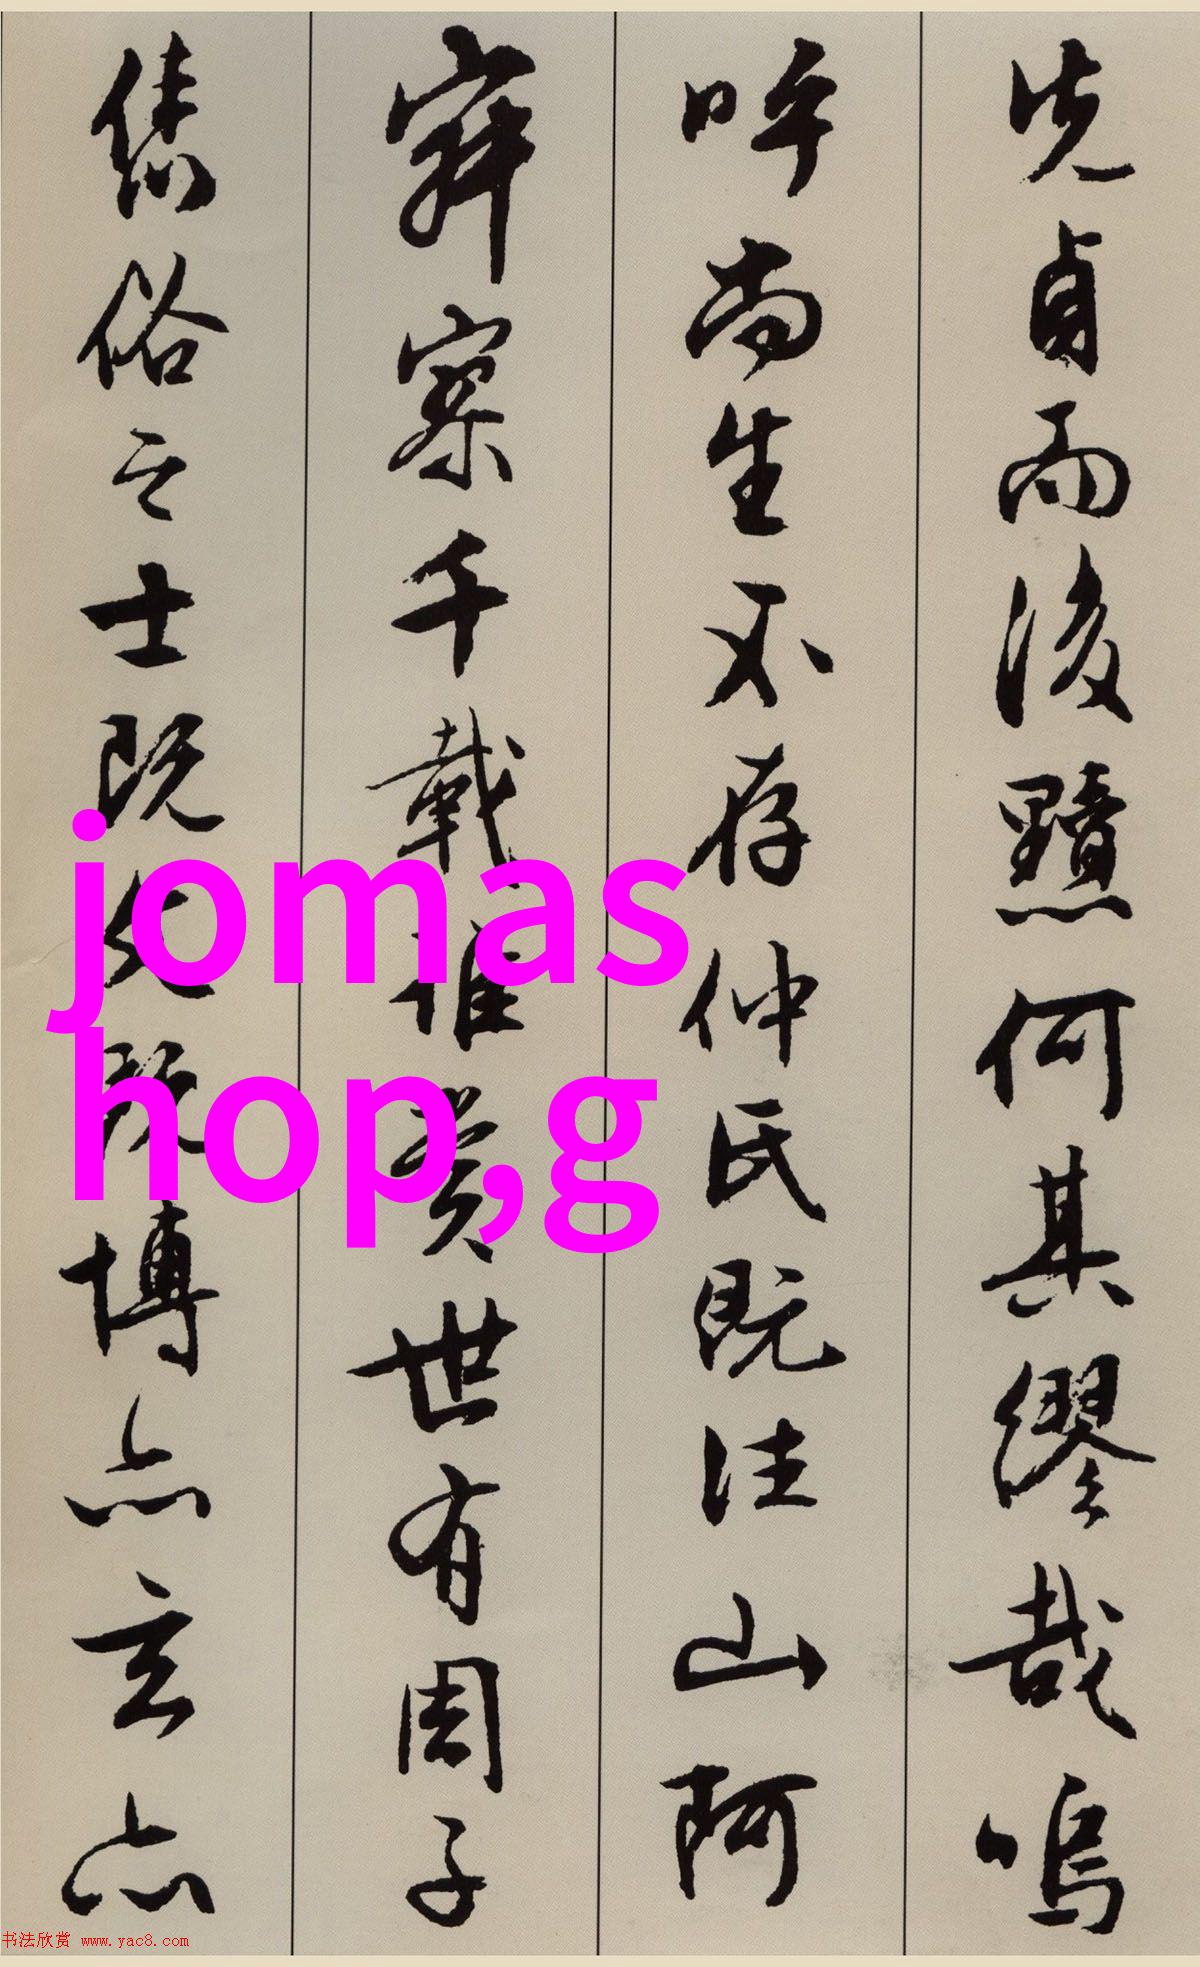 先貞而後黷何其繆哉嗚
呼尚生不存仲氏既往山阿
寂寥千載誰賞世有周子
雋俗之士既文既博亦玄亦
jomas
hop,g
书法欣赏 www.yac8.com